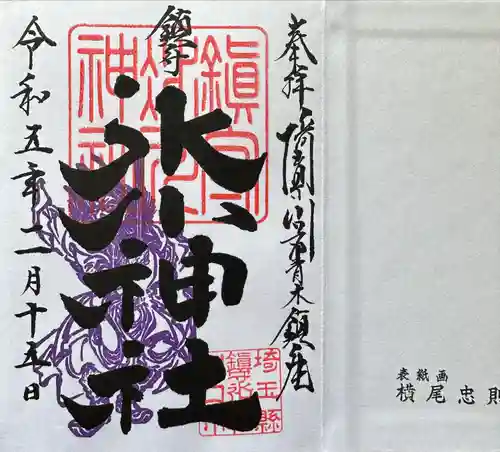 奉拝 埼玉県川口市青木鎮座
鎮守
氷川神社
令和五年二月十五日
鎮守
氷川
神社
埼玉縣
表紙画
横尾忠則